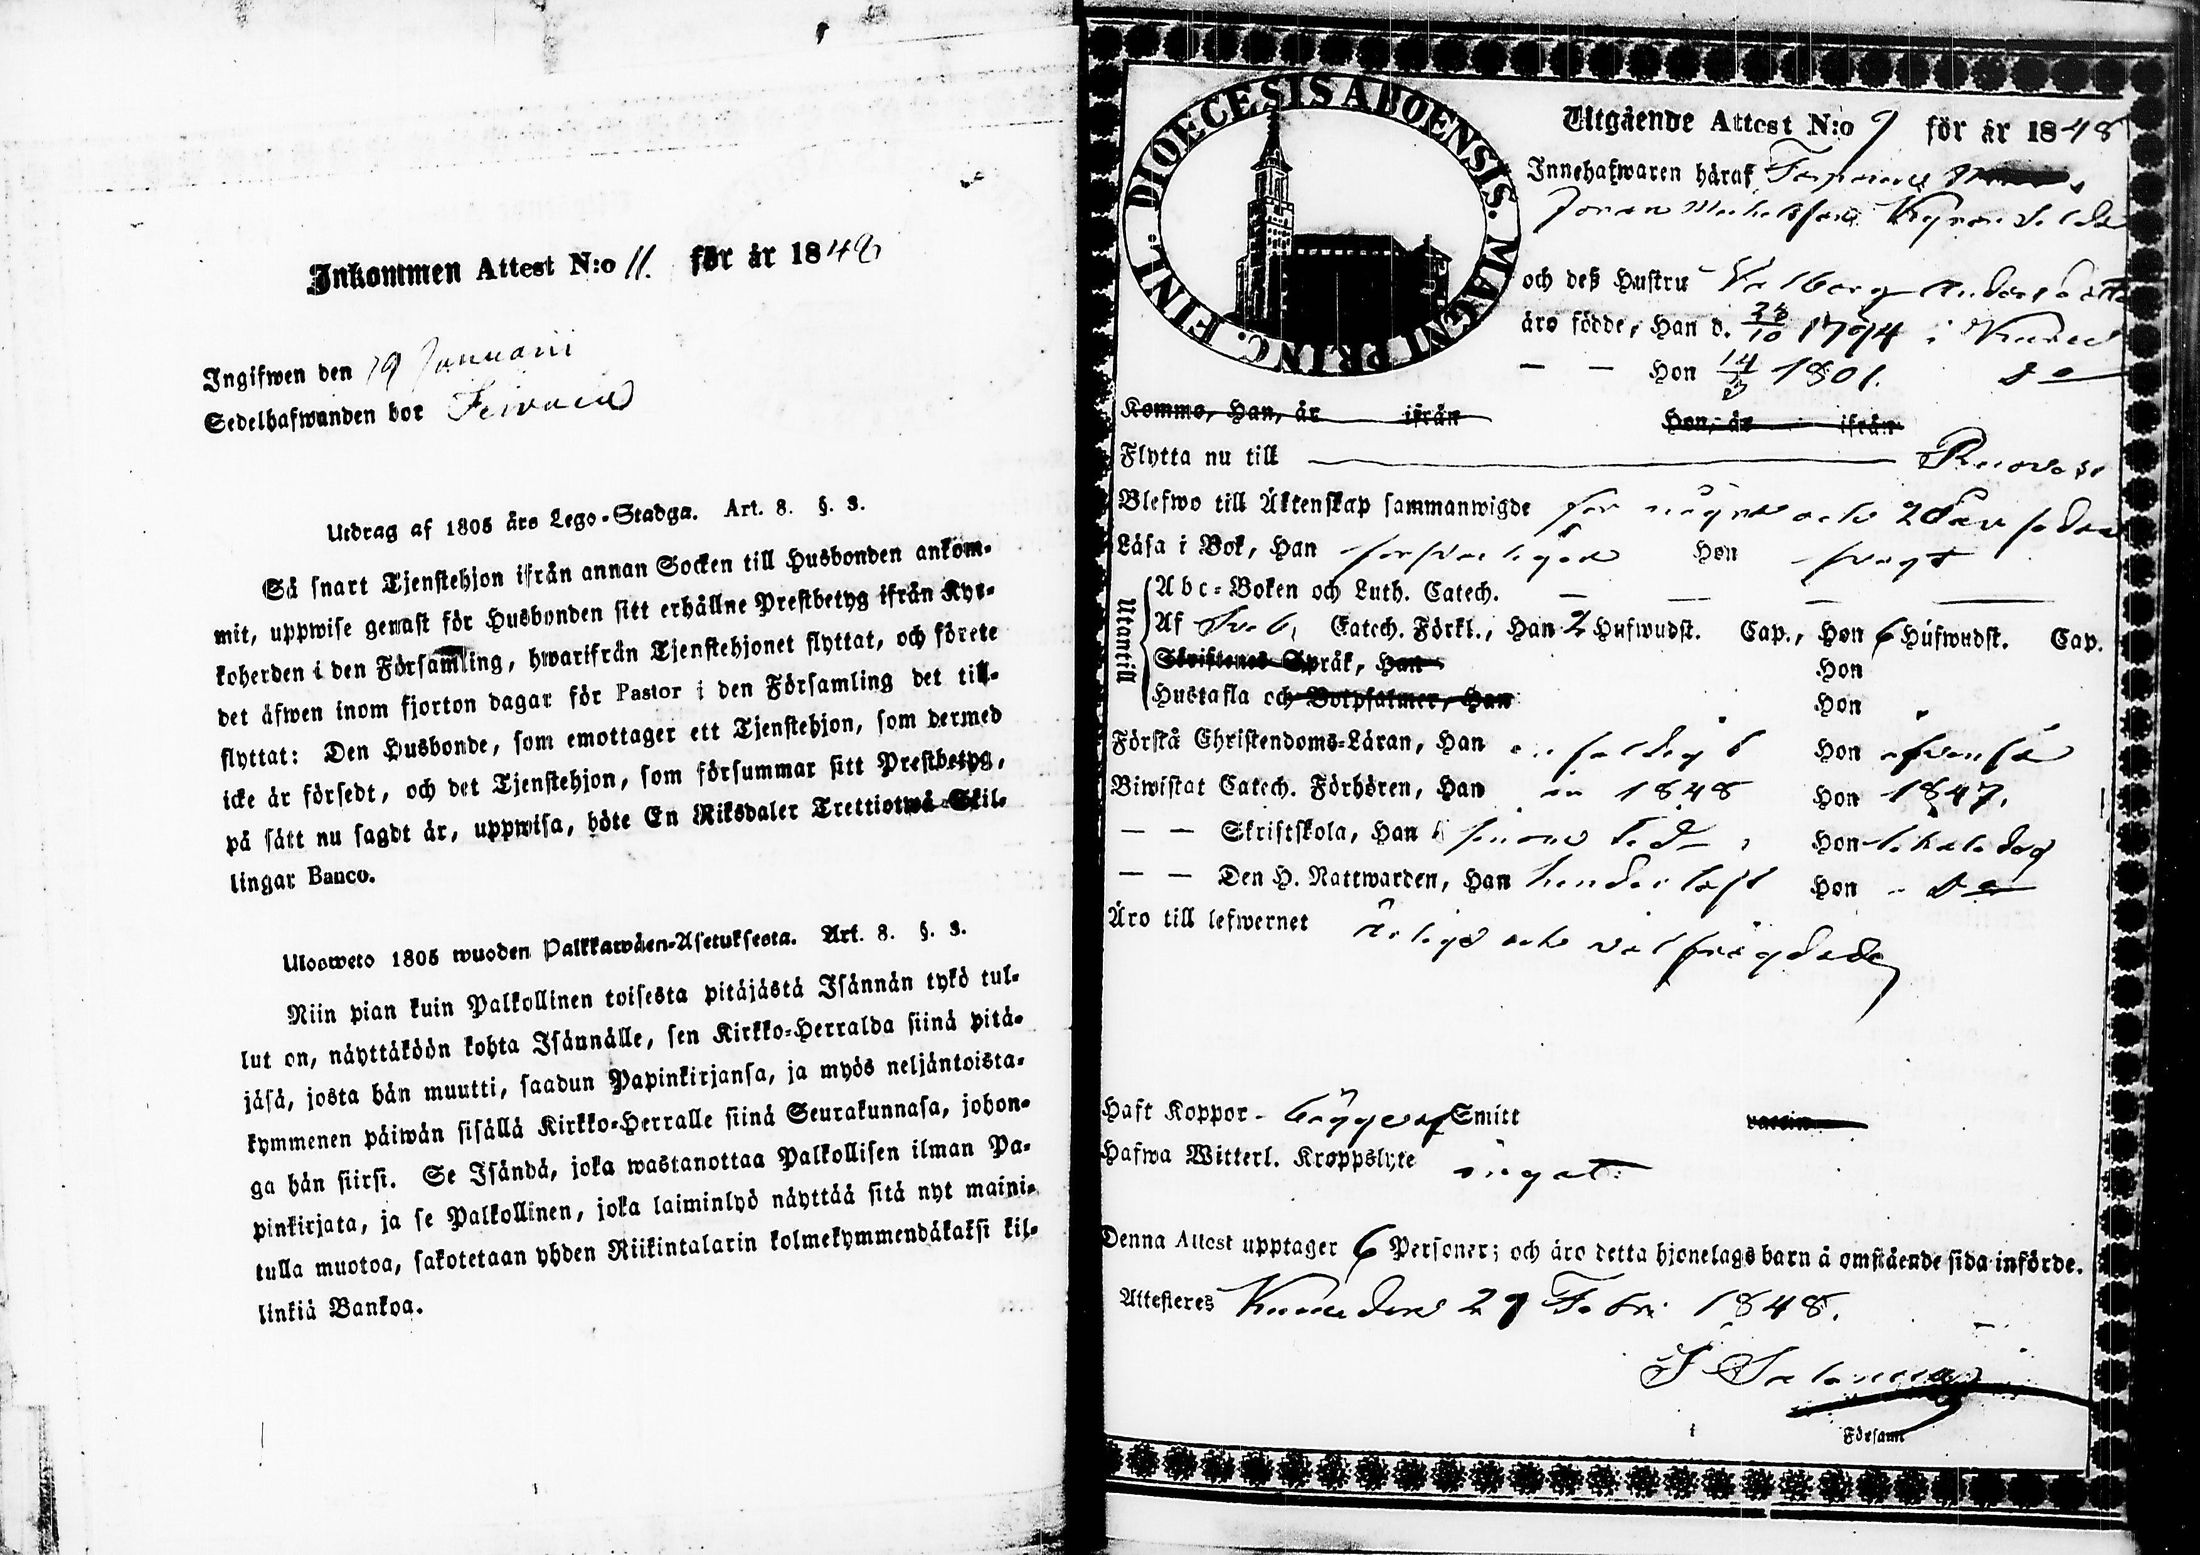 Inkommen Attest N:o 11. för år 184
Ingifwen den 19 Januarii
Sedelhafwanden bor
Utdrag af 1805 års Lego-Stadga. Art. 8. §. 3.
Så snart Tjenstehjon ifrån annan Socken till Husbonden ankom-
mit, uppwise genast för Husbonden sitt erhållne Prestbetyg ifrån Kyr-
koherden i den Församling, hwarifrån Tjenstehjonet flyttat, och förete
det äfwen inom fjorton dagar för Pastor i den Församling det till-
flyttat: Den Husbonde, som emottager ett Tjenstehjon, som dermed
icke är försedt, och det Tjenstehjon, som försummar sitt Prestbetyg,
på sätt nu sagdt är, uppwisa, böte En Riksdaler Trettiotwå Skil-
lingar Banco.
Ulosweto 1805 wuoden Palkkawäen-Asetuksesta. Art. 8. §. 3.
Niin pian kuin Palkollinen toisesta pitäjästä Isännän tykö tul-
lut on, näyttäköön kohta Isännälle, sen Kirkko-Herralda siinä pitä-
jäsä, josta hän muutti, saadun Papinkirjansa, ja myös neljäntoista-
kymmenen päiwän sisällä Kirkko-Herralle siinä Seurakunnasa, johon-
ga hän siirsi. Se Isändä, joka wastanottaa Palkollisen ilman Pa-
pinkirjata, ja se Palkollinen, joka laiminlyö näyttää sitä nyt maini-
tulla muotoa, sakotetaan yhden Riikintalarin kolmekymmendäkaksi kil-
linkiä Bankoa.
DIOECESIS ABOENSIS. MAGNI PRINC. FINL.
Utgående Attest N:o 9 för år 1848
Innehafwaren häraf Torparen
Johan Michelsson
och deß Hustru Valborg Andersdotter
äro födde, Han d. 28/10 1794 i
— — Hon 14/3 1801. do
Komme, Han, år ifrån Hon, år ifrån
Flytta nu till Ruovesi
Blefwo till Äktenskap sammanwigde för några och 20 år sedan
Läsa i Bok, Han försvarligen Hon svagt
Utantill
Abc-Boken och Luth. Catech. — — — —
Af Sveb. Catech. Förkl., Han 2 Hufwudst. Cap., Hon 6 Hufwudst. Cap.
Skriftenes Språk, Han Hon
Hustafla och Botpsalmer, Han Hon
Förstå Christendoms-Läran, Han enfaldigt Hon äfvenså
Biwistat Catech. Förhören, Han in 1848 Hon 1847.
— — Skriftskola, Han i sinom tid, Hon likaledes
— — Den H. Nattwarden, Han Hon do
Äro till lefwernet ärliga och välfrägdade
Haft Koppor Smitt vaccin
Hafwa Witterl. Kroppslyte inget.
Denna Attest upptager 6 Personer; och äro detta hjonelags barn å omstående sida införde.
Attesteres den 29 Febr. 1848.
i Församl